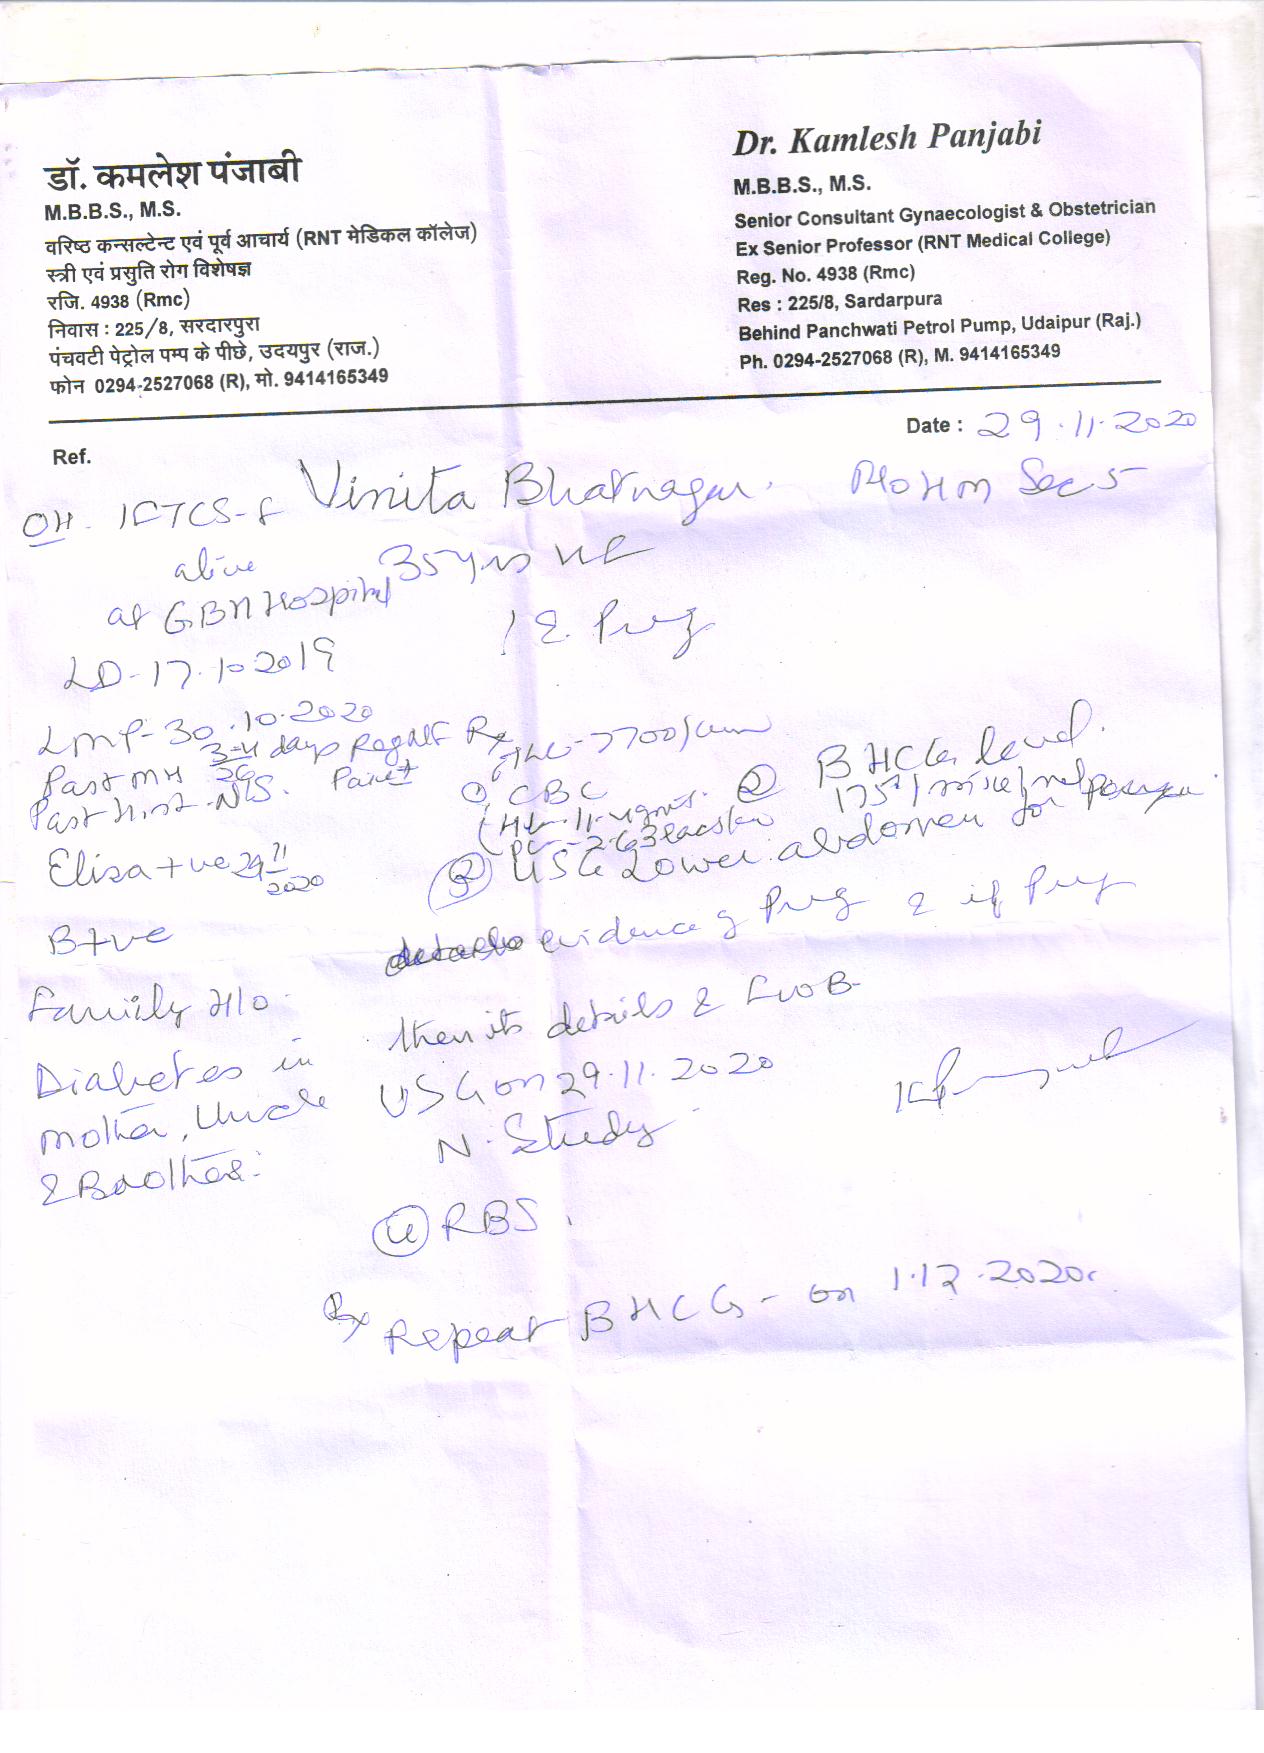 डॉ. कमलेश पंजाबी
M.B.B.S., M.S.
वरिष्ठ कन्सल्टेन्ट एवं पूर्व आचार्य (RNT मेडिकल कॉलेज)
स्त्री एवं प्रसुति रोग विशेषज्ञ
रजि. 4938 (Rmc)
निवास : 225/8, सरदारपुरा
पंचवटी पेट्रोल पम्प के पीछे, उदयपुर (राज.)
फोन 0294-2527068 (R), मो. 9414165349
Dr. Kamlesh Panjabi
M.B.B.S., M.S.
Senior Consultant Gynaecologist & Obstetrician
Ex Senior Professor (RNT Medical College)
Reg. No. 4938 (Rmc)
Res : 225/8, Sardarpura
Behind Panchwati Petrol Pump, Udaipur (Raj.)
Ph. 0294-2527068 (R), M. 9414165349
Date : 29.11.2020
Ref.
Vinita Bhatnagar. Sec 5
OH - 1FTCS-f
alive
35yrs
at GBH Hospital
LD-17.10.2019
LMP-30.10.2020
Past MH 3-4 days Reg
Past Hist-NS.
TLC-7700/cum
① CBC
② BHCG level.
③ USG Lower abdomen for
Elisa +ve 29/11/2020
B+ve
evidence of Preg & if Preg
then its details & FWB-
Family H/o
Diabetes in
Mother, Uncle
& Brother.
USG on 29.11.2020
N. Study
④ RBS.
Rx Repeat BHCG - on 1.12.2020.